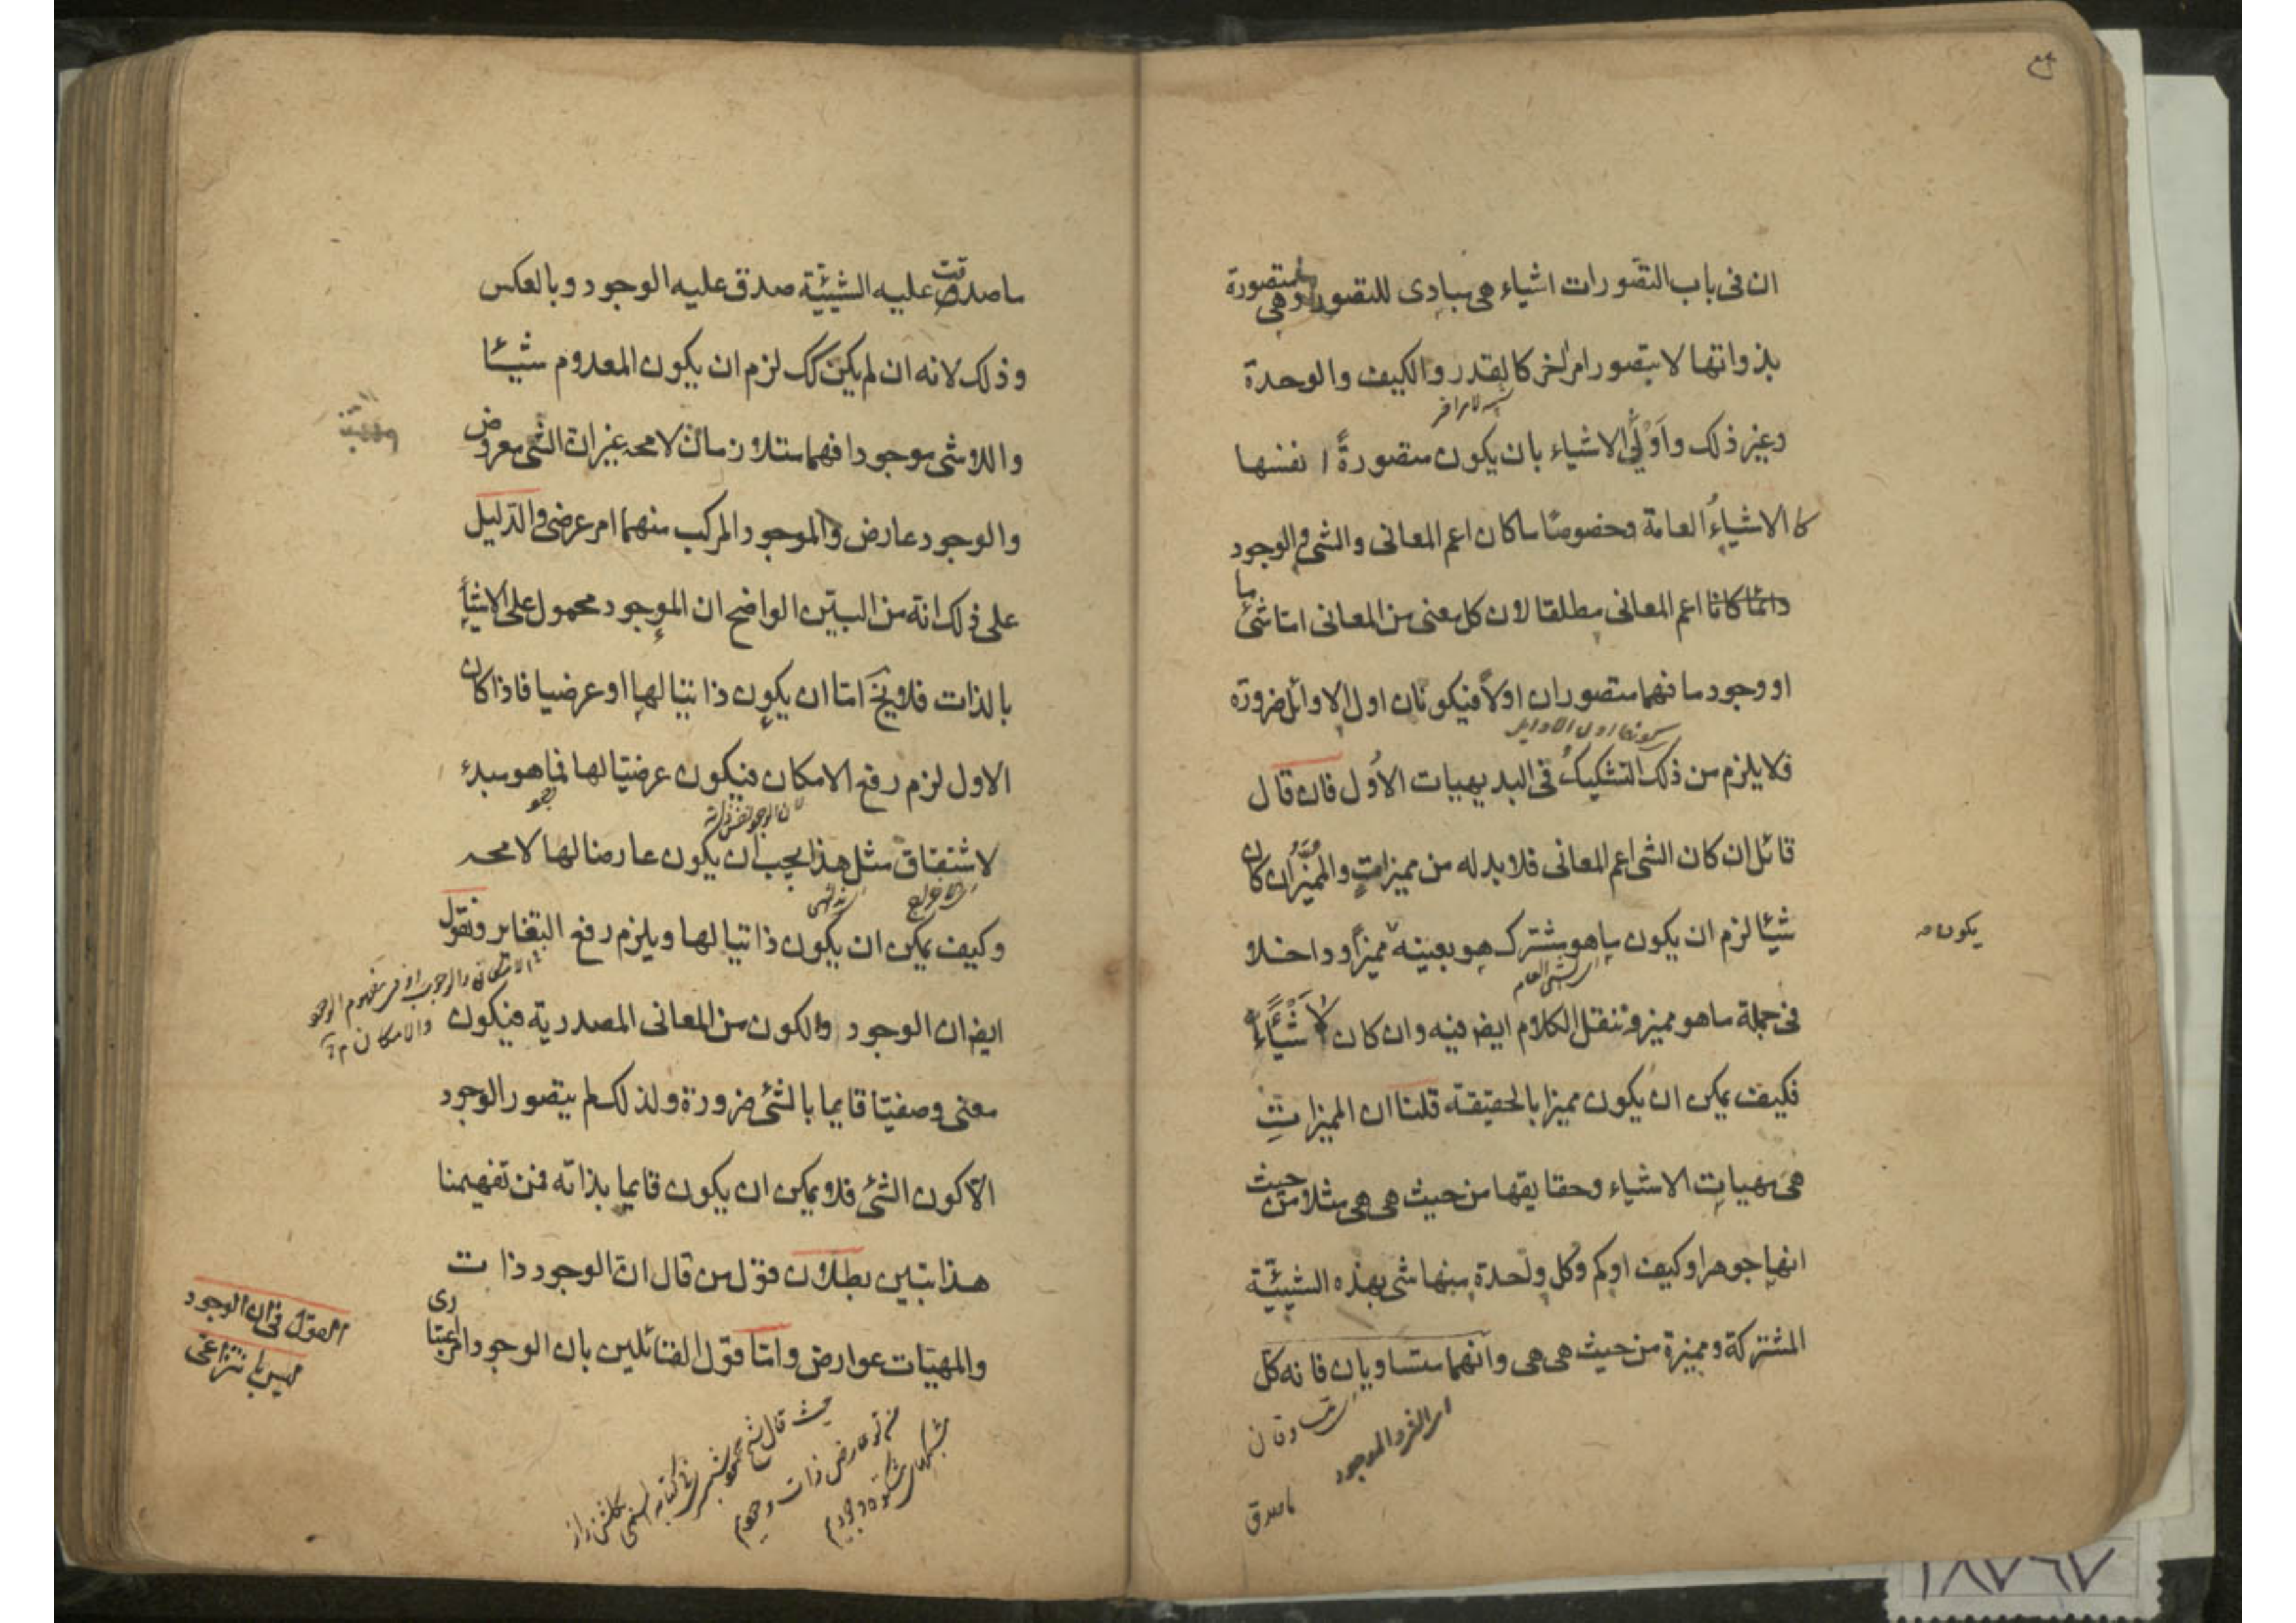 ان فى باب التصورات اشياء هى مبادى للتصور وهى متصورة
بذواتها لا بتصور امر اخر كالقدر والكيف والوحدة
وغير ذلك واَوْلَى الاشياء بان يكون متصورةً انفسها
كالاشياءُ العامة وخصوصًا ما كان اعم المعانى والشئ والوجود
دائمًا كانا اعم المعانى مطلقا لان كل معنى من المعانى اما شئ ما
او وجود ما فهما متصوران اولًا فيكونان اول الاوائل ضرورة
فلا يلزم من ذلك التشكيك فى البديهيات الاُول فان قال
قائل ان كان الشئ اعم المعانى فلا بد له من مميزات والمميّز ان كان
شيئا لزم ان يكون ما هو مشترك هو بعينه مميزًا وداخلا
يكون
فى جملة ما هو مميز وننقل الكلام ايض فيه وان كان لا شَيْئًا
فكيف يمكن ان يكون مميزا بالحقيقة قلنا ان المميزات
هى مهيات الاشياء وحقايقها من حيث هى هى مثلا من حيث
انها جوهر او كيف او كم وكل واحدة منها شئ بهذه الشيئيّة
المشتركة ومميزة من حيث هى هى وانهما متساويان فانه كل
ما صدق
ما صدقت عليه الشيئيّة صدق عليه الوجود وبالعكس
وذلك لانه ان لم يكن كك لزم ان يكون المعدوم شيئا
واللاشى موجودا فهما متلازمان لا محه غير ان الشئ معروض
والوجود عارض والموجود المركب منهما امر عرضى والدليل
على ذلك انه من البيّن الواضح ان الموجود محمول على الاشياء
بالذات فلا يخ اما ان يكون ذاتيا لها او عرضيا فاذا كان
الاول لزم رفع الامكان فيكون عرضيّا لها فما هو مبدء
لاشتقاق مثل هذا يجب ان يكون عارضا لها لا محه
وكيف يمكن ان يكون ذاتيا لها ويلزم رفع التغاير ونقول
ايض ان الوجود والكون من المعانى المصدرية فيكون
معنى وصفيّا قايما بالشئ ضرورة ولذلك لم يتصور الوجود
الّا كون الشئ فلا يمكن ان يكون قايما بذاته فمن تفهيمنا
هذا تبين بطلان قول من قال ان الوجود ذات
والمهيّات عوارض وامّا قول القائلين بان الوجود امر اعتبارى
القول فى ان الوجود
ليس بانتزاعى
حيث قال شيخ محمود شبسترى فى كتابه المسمى بگلشن راز
من تو عارض ذات وجوديم
مشبكهاى مشكوة وجوديم